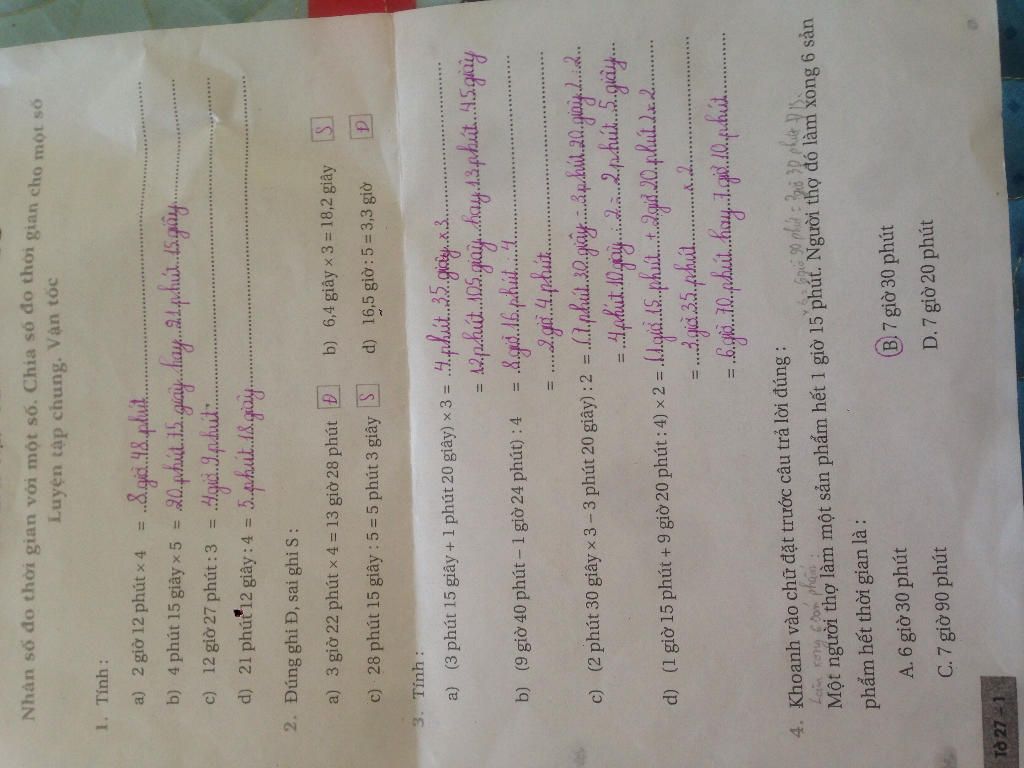 Nhân số đo thời gian với một số. Chia số đo thời gian cho một số
Luyện tập chung. Vận tốc
1. Tính :
a) 2 giờ 12 phút × 4 = 8 giờ 48 phút
b) 4 phút 15 giây × 5 = 20 phút 75 giây hay 21 phút 15 giây
c) 12 giờ 27 phút : 3 = 4 giờ 9 phút
d) 21 phút 12 giây : 4 = 5 phút 18 giây
2. Đúng ghi Đ, sai ghi S :
a) 3 giờ 22 phút × 4 = 13 giờ 28 phút Đ b) 6,4 giây × 3 = 18,2 giây S
c) 28 phút 15 giây : 5 = 5 phút 3 giây S d) 16,5 giờ : 5 = 3,3 giờ Đ
3. Tính :
a) (3 phút 15 giây + 1 phút 20 giây) × 3 = 4 phút 35 giây x 3
= 12 phút 105 giây hay 13 phút 45 giây
b) (9 giờ 40 phút – 1 giờ 24 phút) : 4 = 8 giờ 16 phút : 4
= 2 giờ 4 phút
c) (2 phút 30 giây × 3 – 3 phút 20 giây) : 2 = (7 phút 30 giây - 3 phút 20 giây) : 2
= 4 phút 10 giây : 2 = 2 phút 5 giây
d) (1 giờ 15 phút + 9 giờ 20 phút : 4) × 2 = (1 giờ 15 phút + 2 giờ 20 phút) x 2
= 3 giờ 35 phút x 2
= 6 giờ 70 phút hay 7 giờ 10 phút
4. Khoanh vào chữ đặt trước câu trả lời đúng :
Làm xong 6 sản phẩm : 6 giờ 90 phút = 7 giờ 30 phút
Một người thợ làm một sản phẩm hết 1 giờ 15 phút. Người thợ đó làm xong 6 sản
phẩm hết thời gian là :
A. 6 giờ 30 phút B. 7 giờ 30 phút
C. 7 giờ 90 phút D. 7 giờ 20 phút
Tờ 27 – 1